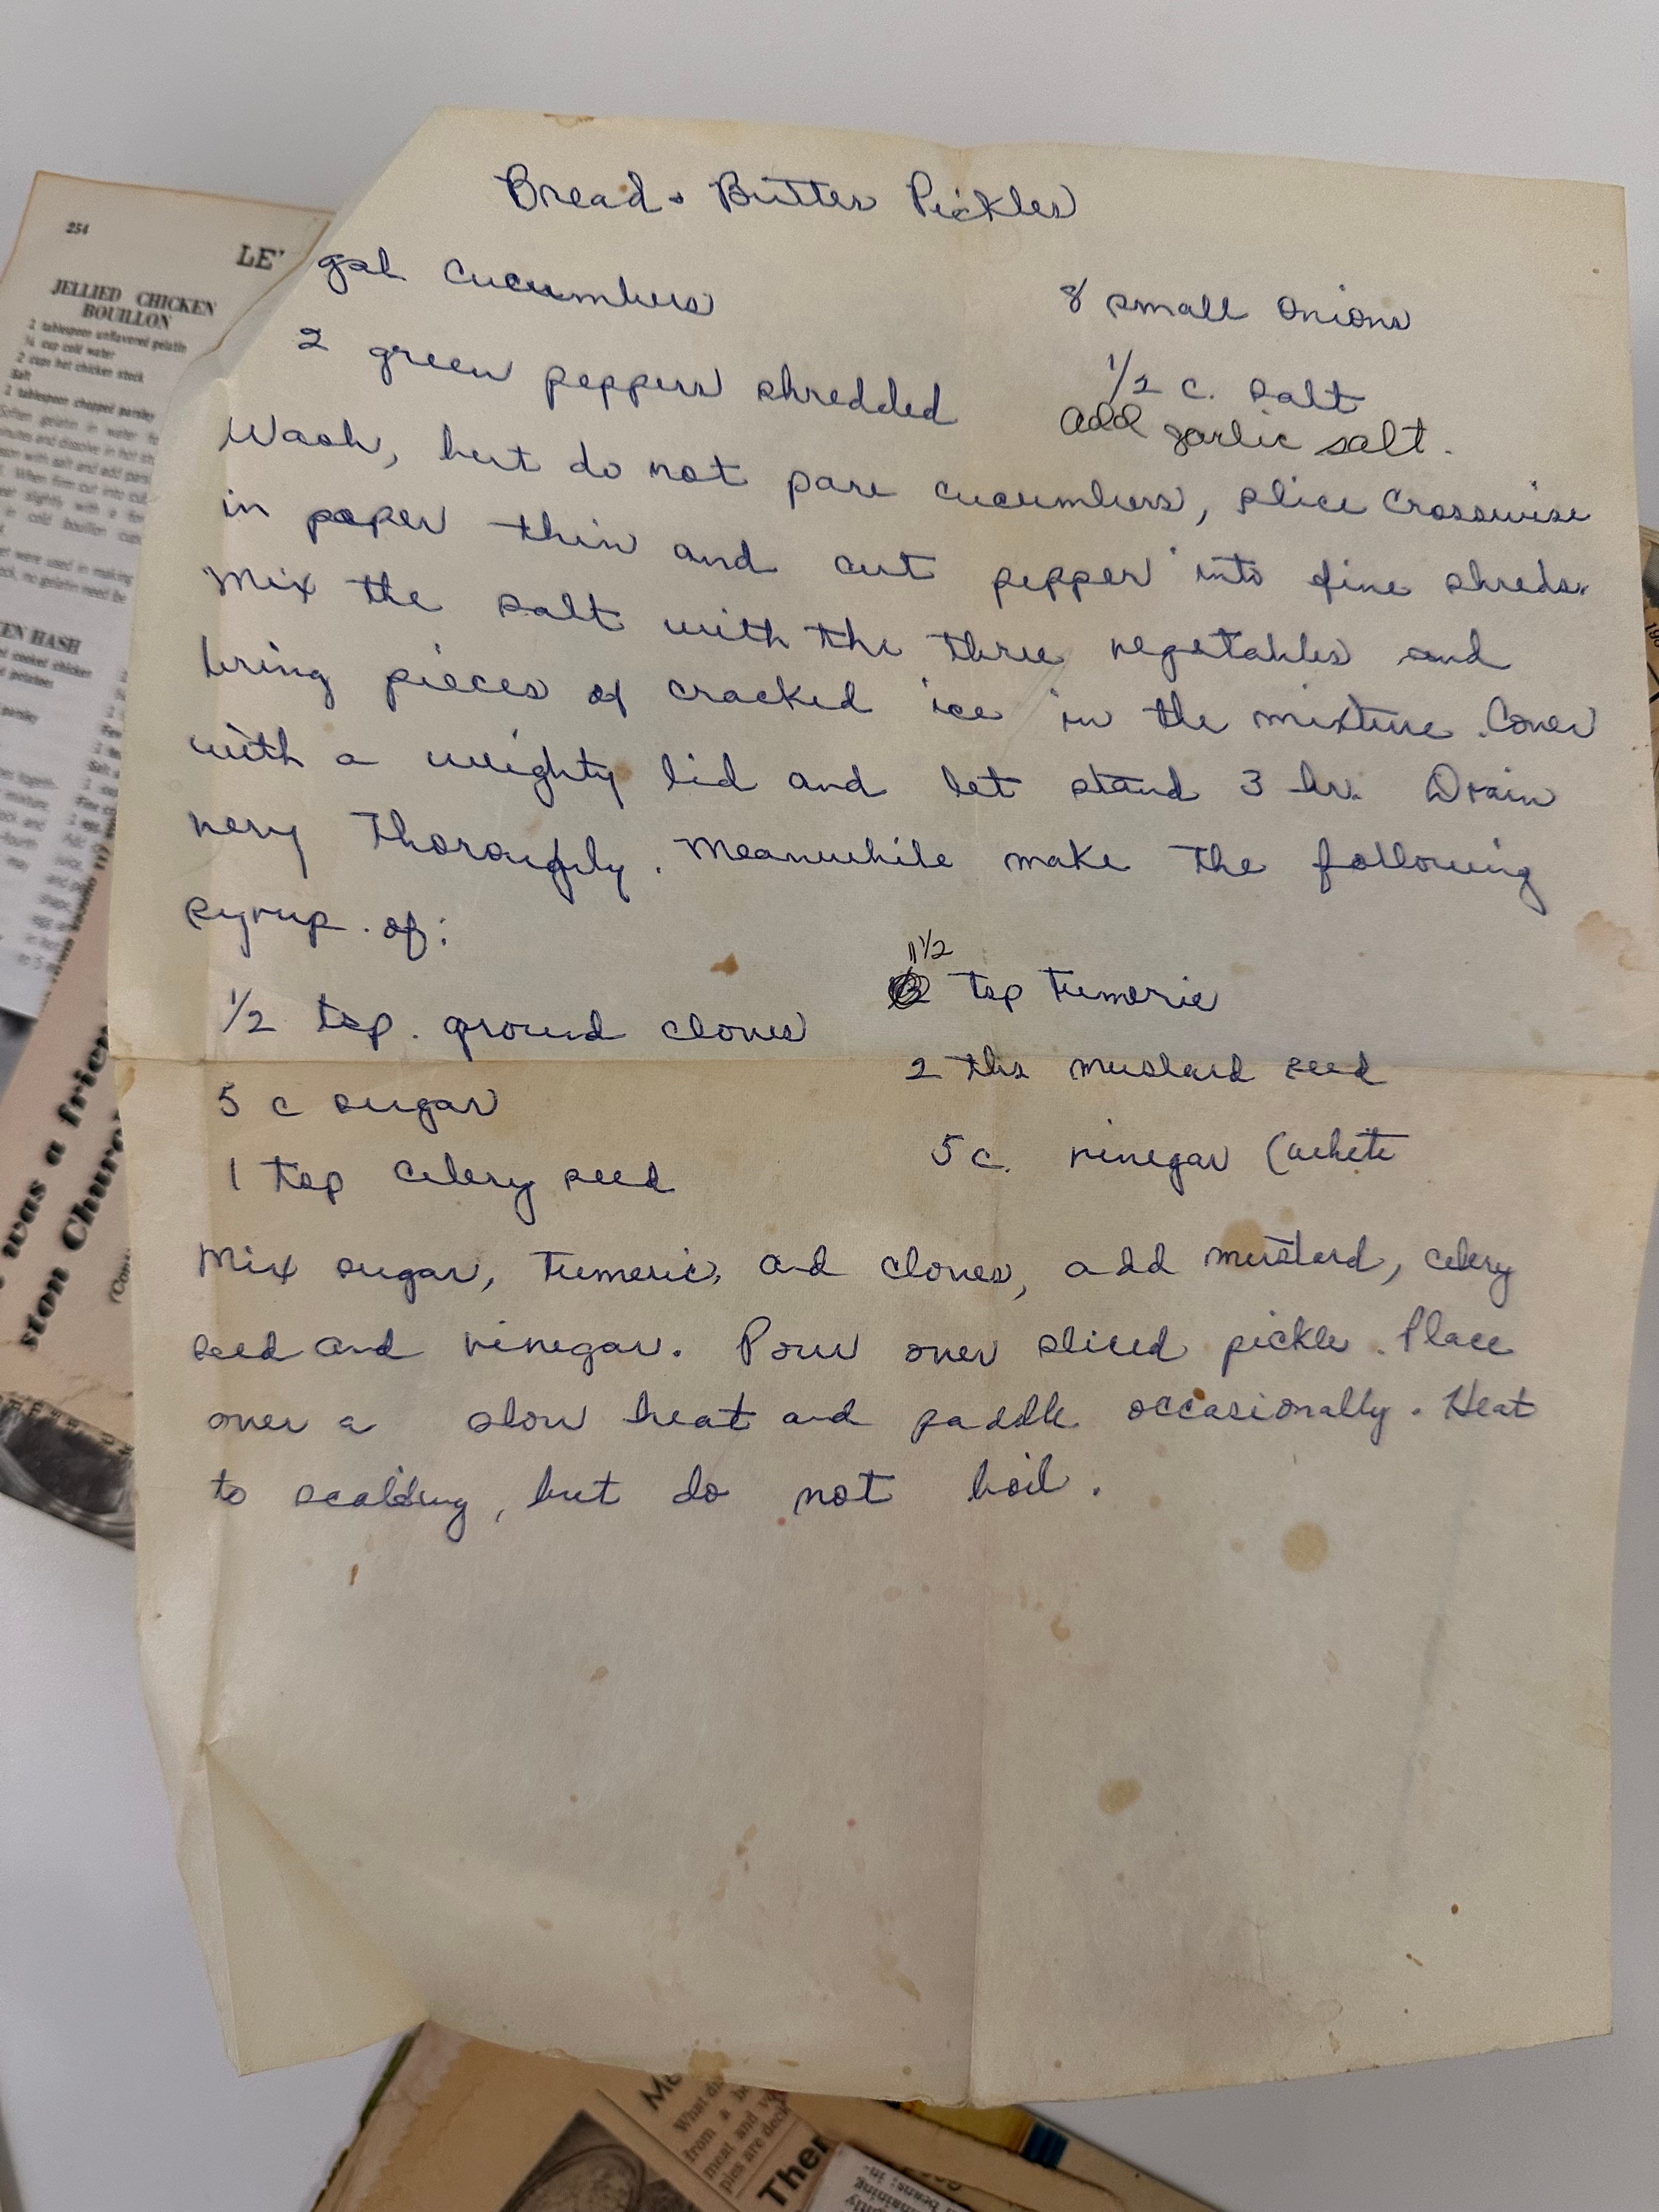 Bread & Butter Pickles
gal cucumbers
8 small onions
2 green peppers shredded
1/2 c. salt
add garlic salt.
Wash, but do not pare cucumbers, slice crosswise
in paper thin and cut pepper into fine shreds.
Mix the salt with the three vegetables and
bring pieces of cracked ice in the mixture. Cover
with a weighty lid and let stand 3 hr. Drain
very thoroughly. Meanwhile make the following
syrup of:
1/2 tsp. ground cloves
1 1/2
tsp tumeric
5 c sugar
2 tbs mustard seed
1 tsp celery seed
5 c. vinegar (white
Mix sugar, tumeric, and cloves, add mustard, celery
seed and vinegar. Pour over sliced pickle. Place
over a slow heat and paddle occasionally. Heat
to scalding, but do not boil.
254
LE'
JELLIED CHICKEN
BOUILLON
2 tablespoon unflavored gelatin
1/4 cup cold water
2 cups hot chicken stock
Salt
2 tablespoon chopped parsley
Soften gelatin in water
and dissolve in hot
with salt and add
When firm cut into
slightly with a
in cold bouillon cups
were used in making
no gelatin need be
EN HASH
cooked chicken
potatoes
parsley
was a frien
ston Churc
What
from a
meat and
pies are
Ther